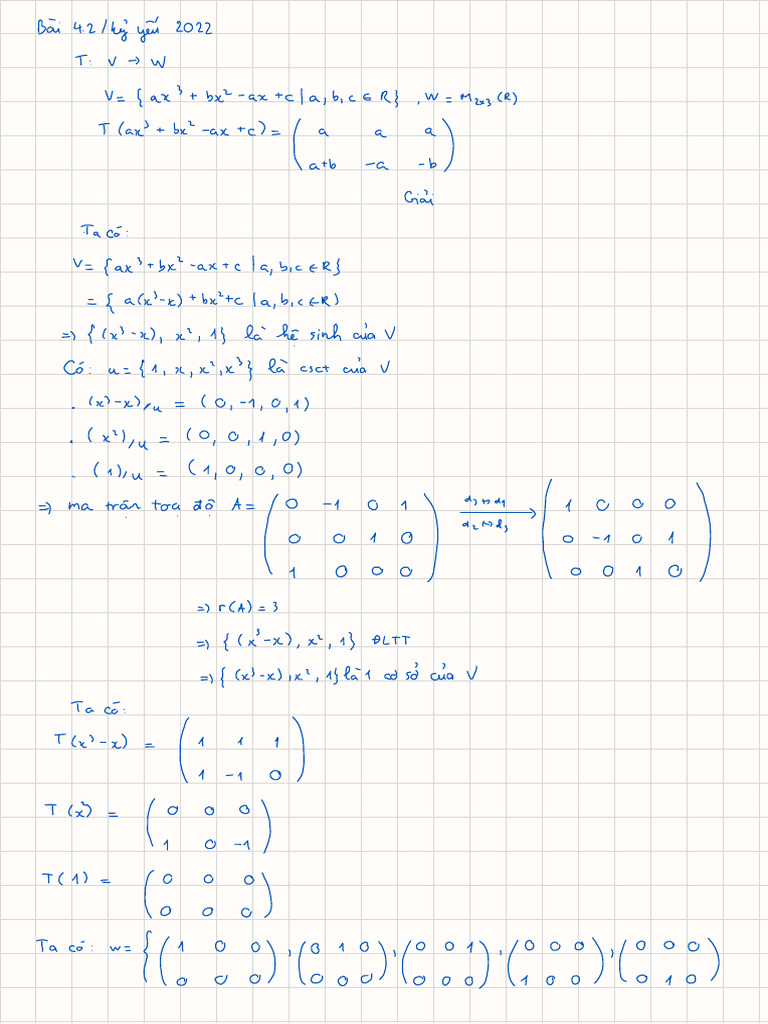 Bài 4.2/kỷ yếu 2022
T: V → W
V= { ax³ + bx² - ax + c | a, b, c ∈ R} , W = M₂ₓ₃ (R)
T (ax³ + bx² - ax + c) = ( a a a
a+b -a -b )
Giải
Ta có:
V= {ax³ + bx² - ax + c | a, b, c ∈ R}
= { a(x³-x) + bx² + c | a, b, c ∈ R)
=> {(x³-x), x², 1} là hệ sinh của V
Có: u = {1, x, x², x³} là csct của V
. (x³-x)/u = (0, -1, 0, 1)
. (x²)/u = (0, 0, 1, 0)
. (1)/u = (1, 0, 0, 0)
=> ma trận toạ độ A = ( 0 -1 0 1 d₃ ↔ d₁ ( 1 0 0 0
0 0 1 0 d₂ ↔ d₃ → 0 -1 0 1
1 0 0 0 ) 0 0 1 0 )
=> r(A) = 3
=> { (x³-x), x², 1} ĐLTT
=> { (x³-x), x², 1} là 1 cơ sở của V
Ta có:
T(x³-x) = ( 1 1 1
1 -1 0 )
T (x²) = ( 0 0 0
1 0 -1 )
T(1) = ( 0 0 0
0 0 0 )
Ta có: w = { ( 1 0 0 ) , ( 0 1 0 ) , ( 0 0 1 ) , ( 0 0 0 ) , ( 0 0 0 )
0 0 0 0 0 0 0 0 0 1 0 0 0 1 0